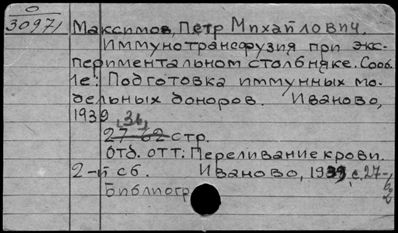 О
30971
Максимов, Петр Михайлович.
Иммунотрансфузия при экс-
периментальном столбняке. Сооб.
1е: Подготовка иммунных мо-
дельных доноров. Иваново,
1939
36,
27-62 стр.
Отд. отт: Переливание крови.
2-й сб. Иваново, 1939, с. 27-
62
Библиогр